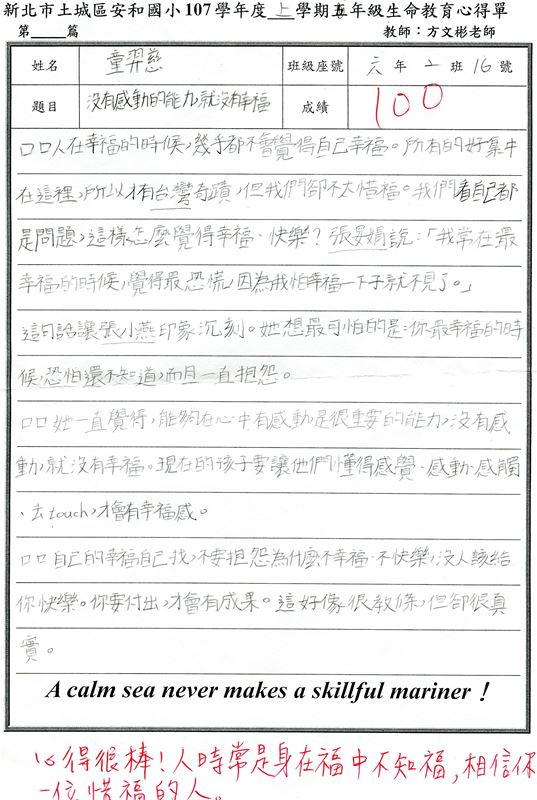 新北市土城區安和國小 107 學年度 上 學期五年級生命教育心得單
第 篇 教師：方文彬老師
姓名 童羿慈 班級座號 六 年 二 班 16 號
題目 沒有感動的能力,就沒有幸福 成績 100
口口人在幸福的時候,幾乎都不會覺得自己幸福。所有的好集中
在這裡,所以才有台灣奇蹟,但我們卻不太惜福。我們看自己都
是問題,這樣怎麼覺得幸福、快樂?張晏娟說:「我常在最
幸福的時候,覺得最恐慌,因為我怕幸福一下子就不見了。」
這句話讓張小燕印象沉刻。她想最可怕的是:你最幸福的時
候,恐怕還不知道,而且一直抱怨。
口口她一直覺得,能夠在心中有感動,是很重要的能力,沒有感
動,就沒有幸福。現在的孩子要讓他們懂得感覺、感動、感觸
、去touch,才會有幸福感。
口口自己的幸福自己找,不要抱怨為什麼不幸福、不快樂,沒人該給
你快樂。你要付出,才會有成果。這好像很教條,但卻很真
實。
A calm sea never makes a skillful mariner！
心得很棒!人時常是身在福中不知福,相信你
一位惜福的人。